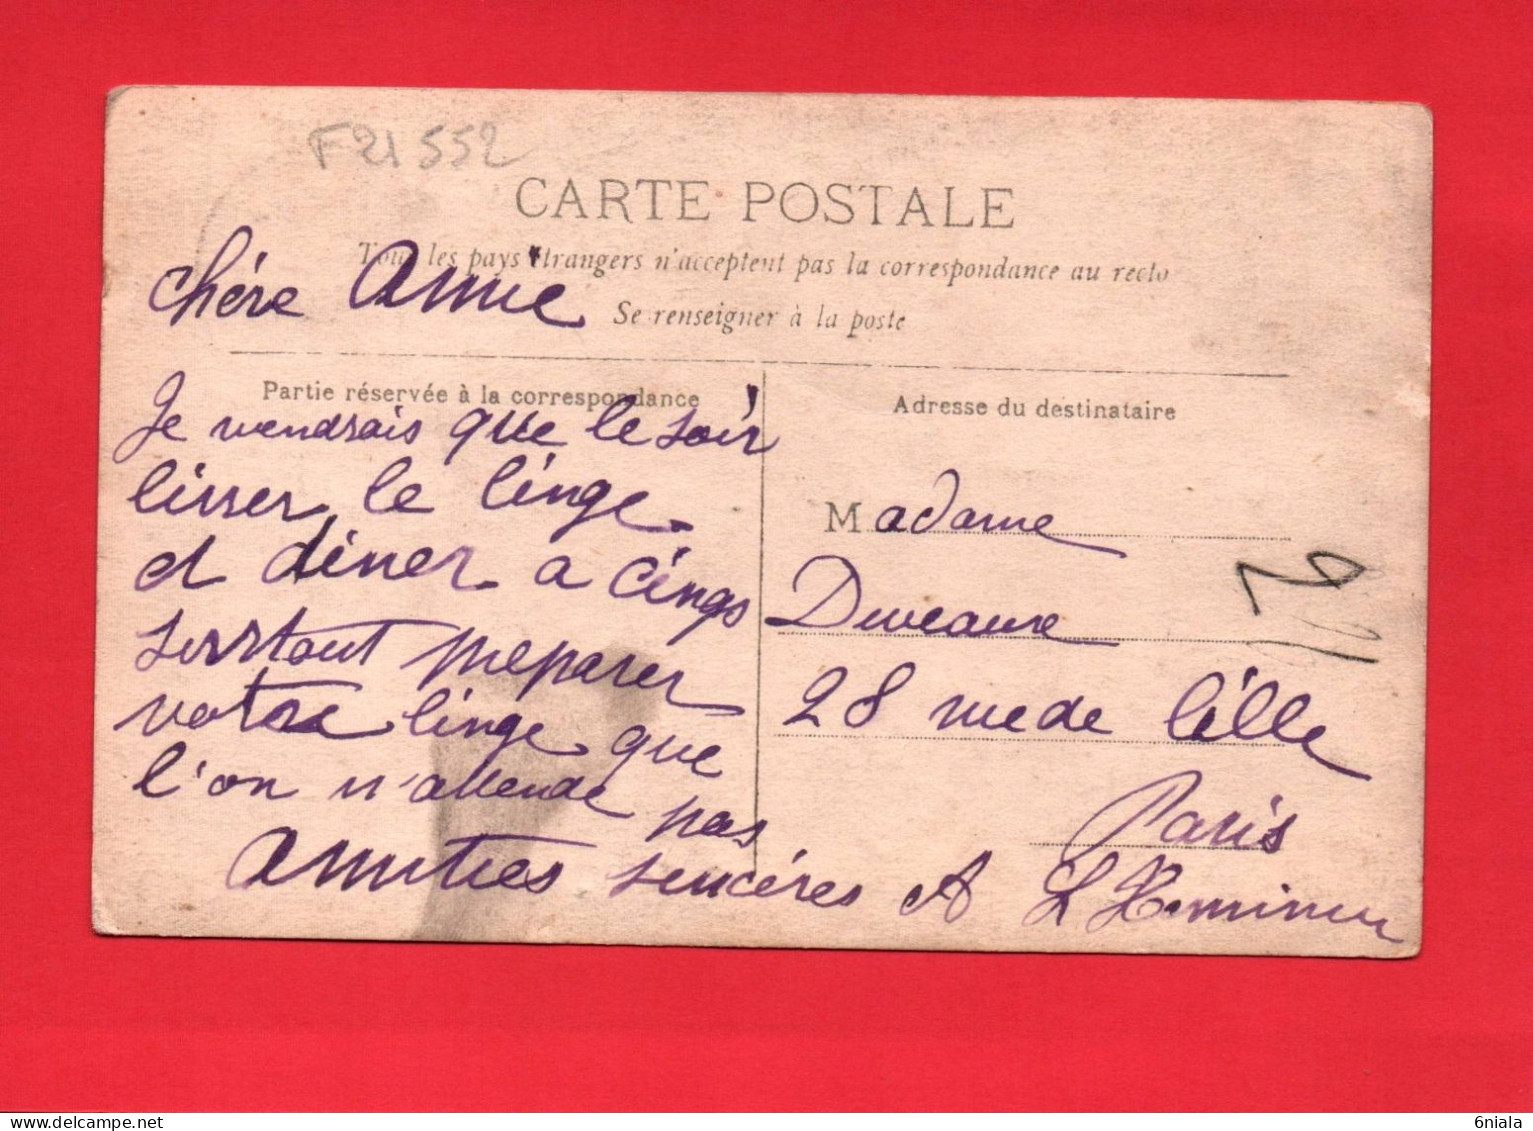 F21552
CARTE POSTALE
Tous les pays étrangers n'acceptent pas la correspondance au recto
Se renseigner à la poste
chére Amie
Partie réservée à la correspondance
Je vendrais que le soir
lisser le linge
et diner a cings
surtout preparer
votre linge que
l'on n'attende pas
Amitiés sencéres A L
Adresse du destinataire
Madame
28 rue de Lille
Paris
delcampe.net
6niala